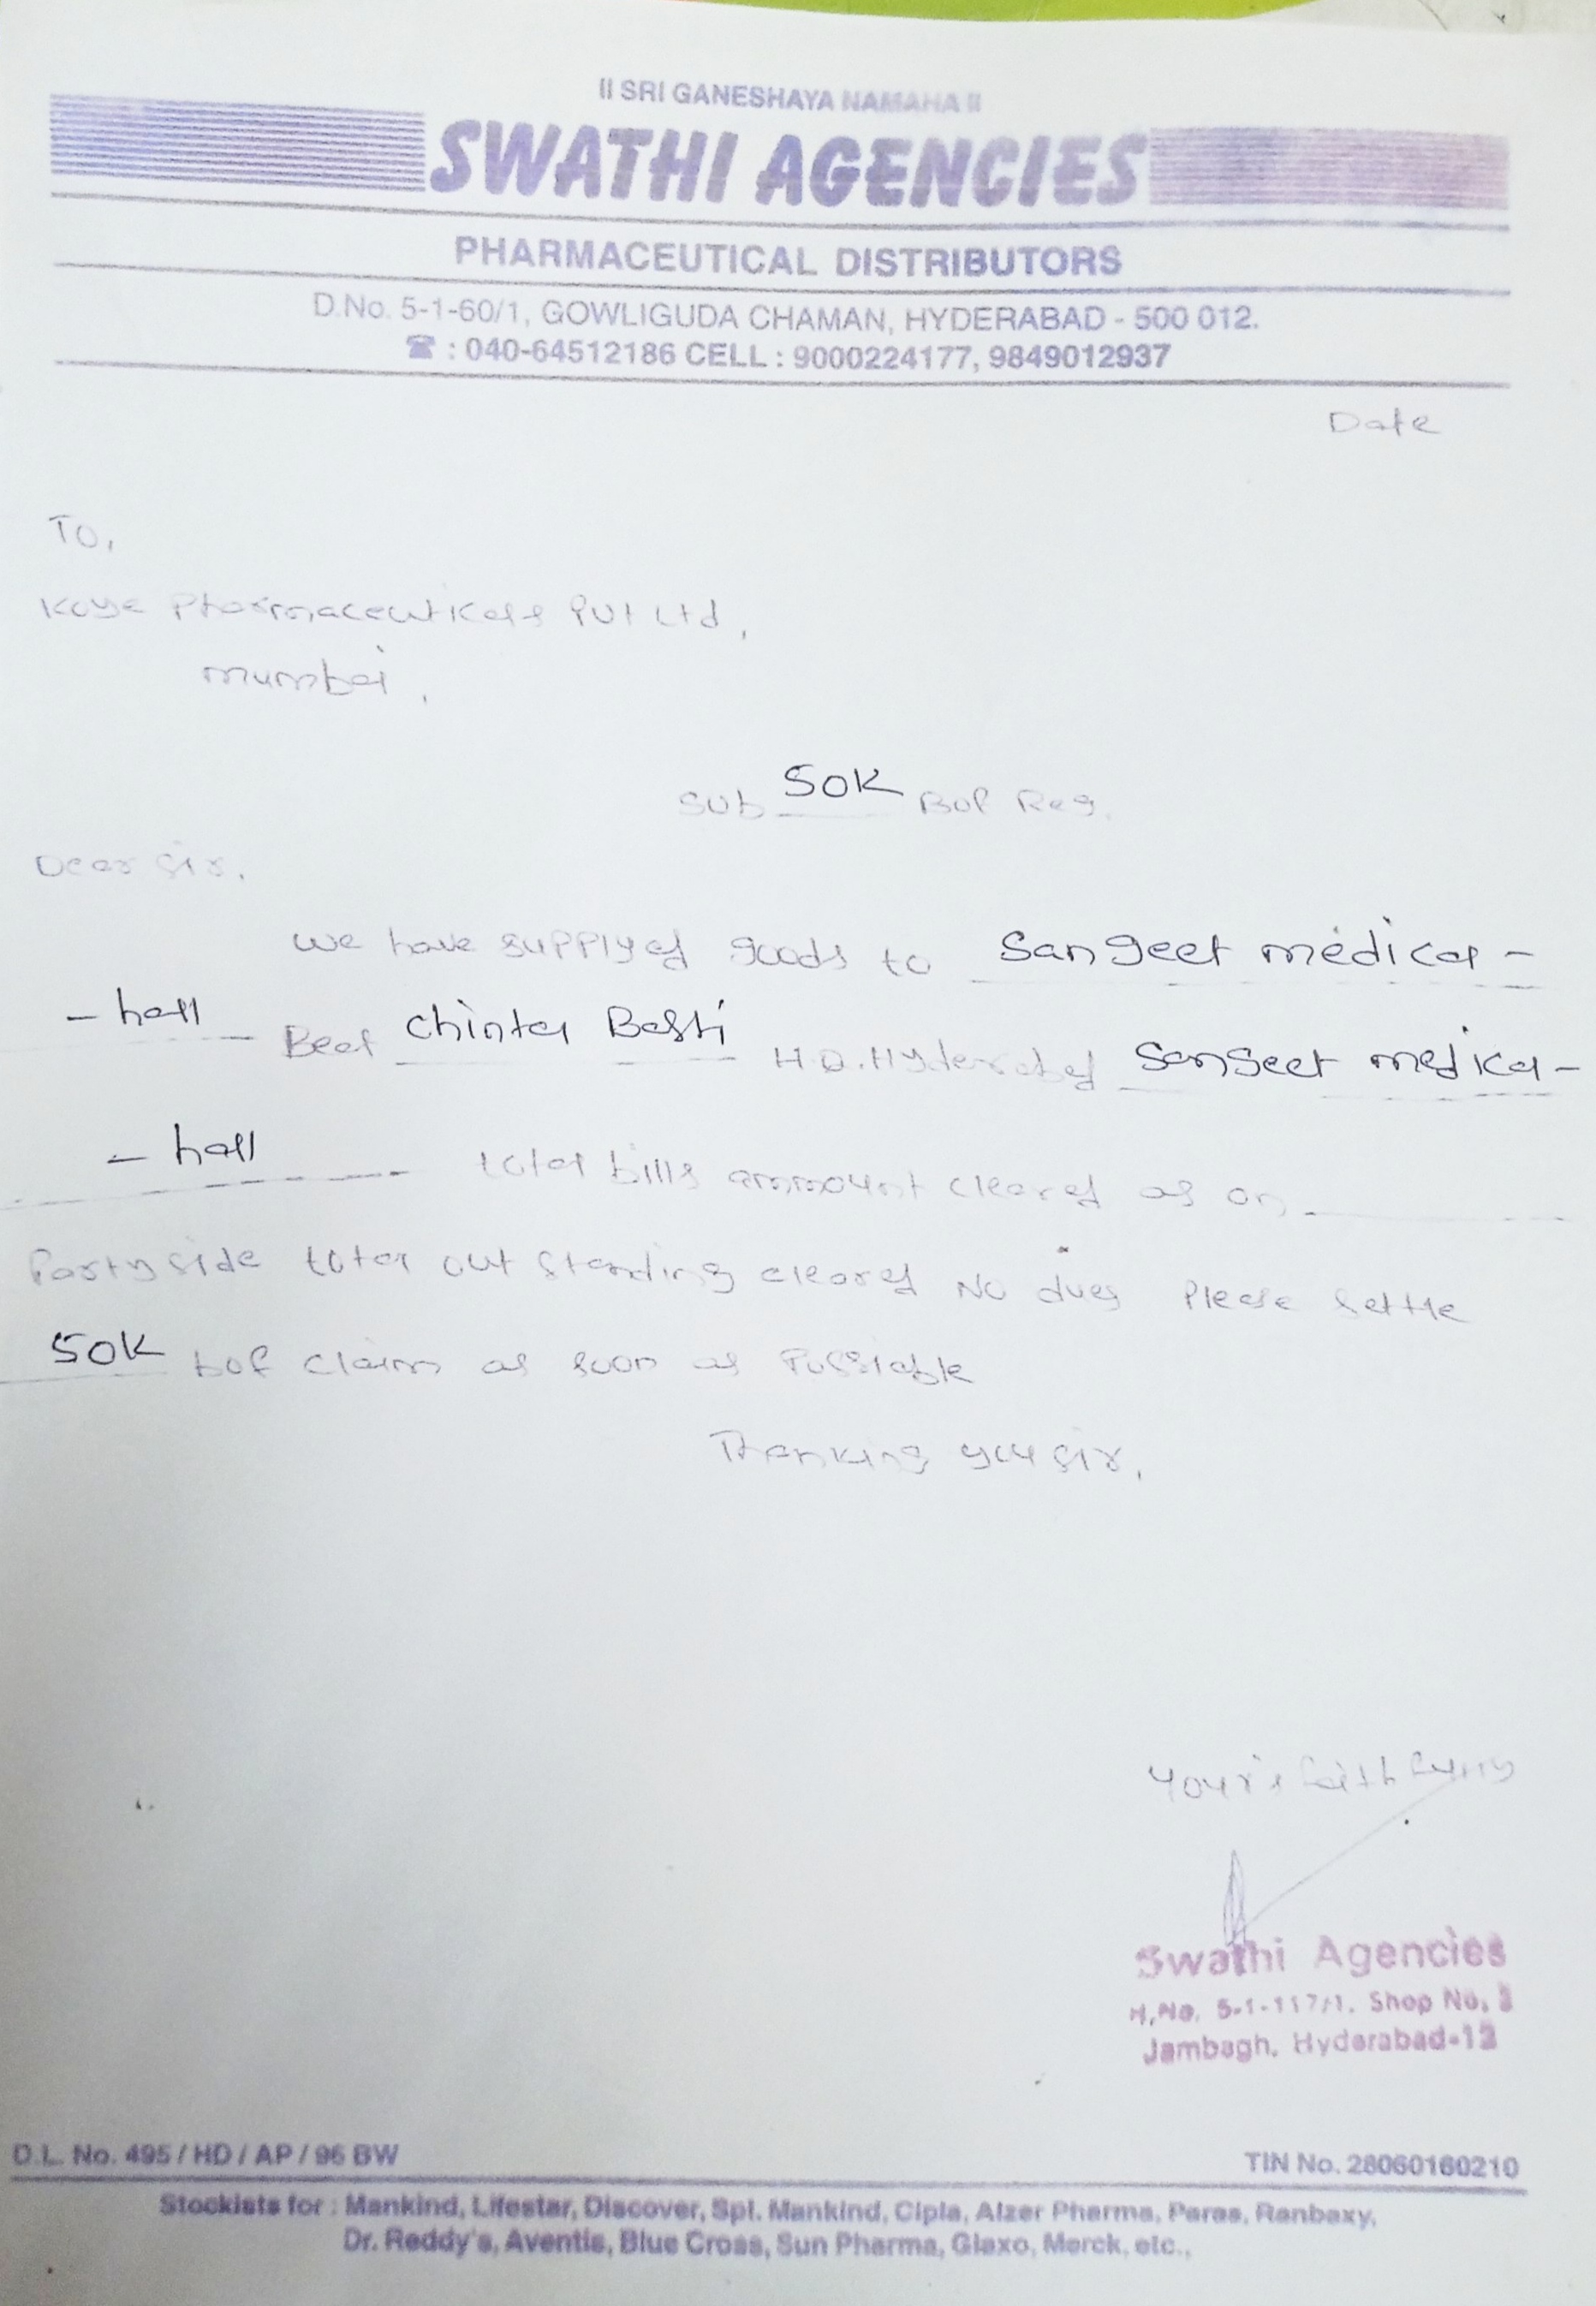 II SRI GANESHAYA NAMAHA II
SWATHI AGENCIES
PHARMACEUTICAL DISTRIBUTORS
D.No. 5-1-60/1, GOWLIGUDA CHAMAN, HYDERABAD - 500 012.
☎ : 040-64512186 CELL : 9000224177, 9849012937
Date
To,
Koye Pharmaceuticals Pvt Ltd,
mumbai,
Sub 50K Bof Reg.
Dear Sir,
we have supplyed goods to Sangeet medical -
- hall Beat Chintal Basti H.Q.Hyderabad Sangeet medical -
- hall total bills ammount cleared as on
Party side total out standing cleared No dues Please settle
50K bof claim as soon as Possiable
Thanking you sir,
Your's faithfully
Swathi Agencies
H.No. 5-1-117/1. Shop No.
Jambagh, Hyderabad-12
D.L. No. 495 / HD / AP / 96 BW
TIN No. 28060160210
Stockists for : Mankind, Lifestar, Discover, Spl. Mankind, Cipla, Alzer Pharma, Paras, Ranbaxy,
Dr. Reddy's, Aventis, Blue Cross, Sun Pharma, Glaxo, Merck, etc.,